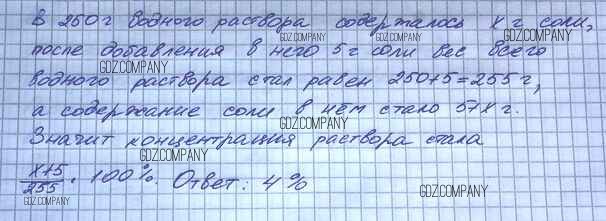 В 250 г водного раствора содержалось x г соли,
GDZ.COMPANY GDZ.COMPANY
после добавления в него 5 г соли вес всего
GDZ.COMPANY
водного раствора стал равен 250+5=255 г,
GDZ.COMPANY
а содержание соли в нем стало 5+x г.
GDZ.COMPANY
Значит концентрация раствора стала
GDZ.COMPANY
x+5/255 · 100%. Ответ: 4%
GDZ.COMPANY GDZ.COMPANY